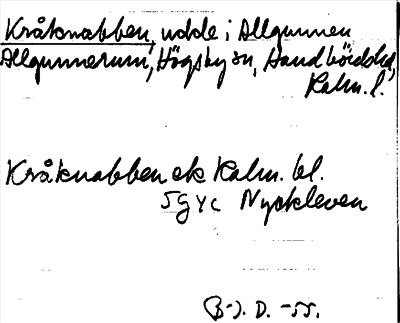 Kråknabben, udde i Allgunnen
Allgunnerum, Högsby sn, Handbörds hd,
Kalm. l.
Kråknabben ek Kalm. bl.
5G YC Nyckleven
B-J. D. -55.